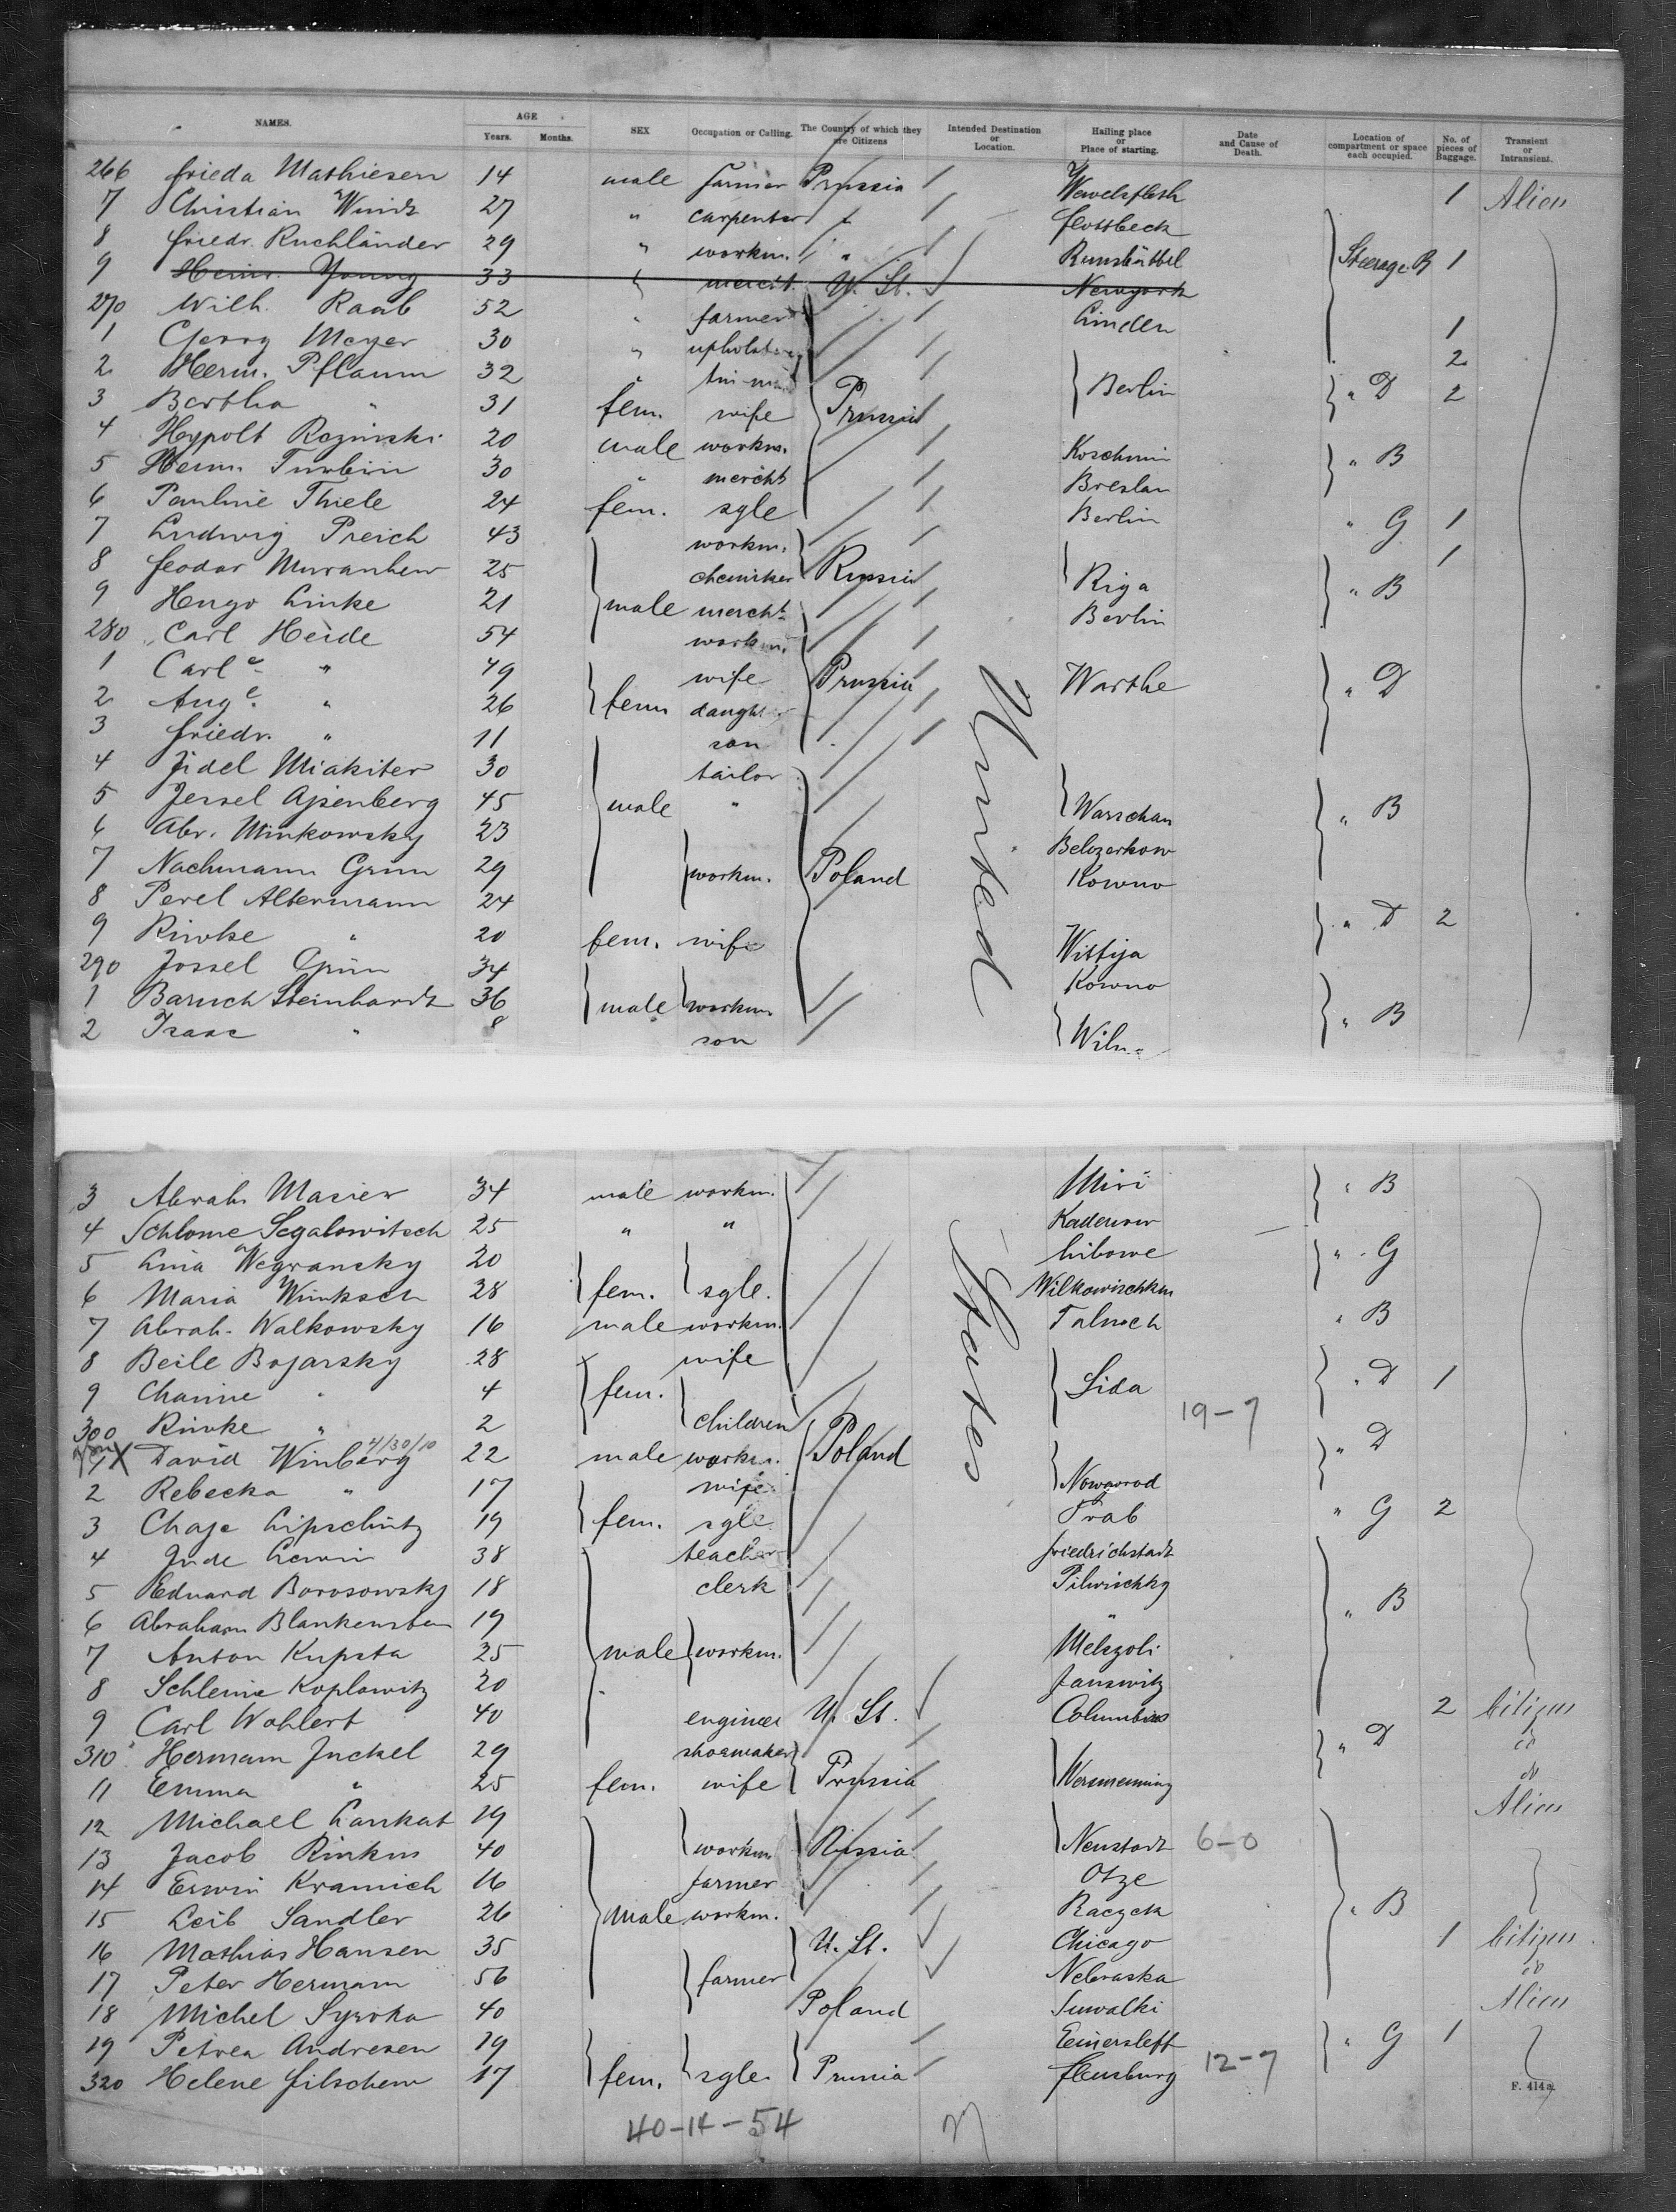 NAMES. AGE SEX Occupation or Calling. The Country of which they are Citizens Intended Destination or Location. Hailing place or Place of starting. Date and Cause of Death. Location of compartment or space each occupied. No. of pieces of Baggage. Transient or Intransient.
Years. Months.
266 Frieda Mathiesen 14 male farmer Prussia Wewelsfleth 1 Alien
7 Christian 27 " carpenter Flottbeck
8 Friedr. Ruchländer 29 " workm. " Steerage B 1
9 Heinr. Young 33 mercht. U. St. Newyork
270 Wilh. Raab 52 " farmer Linden
1 Georg Meyer 30 " 1
2 Herm. Pflaum 32 " Berlin " D 2
3 Bertha " 31 fem. wife Prussia 2
4 Hypolt Rozinski 20 male workm. Koschmin " B
5 Herm. 30 " mercht Breslau
6 Pauline Thiele 24 fem. sgle Berlin " G 1
7 Ludwig Preich 43 workm. 1
8 Feodor 25 chemiker Russia Riga " B
9 Hugo Linke 21 male mercht. Berlin
280 Carl Heide 54 workm.
1 Carle " 49 wife Prussia Warthe " D
2 Auge. " 26 fem daught.
3 Friedr. " 11 son
4 Fidel Miakiter 30 tailor
5 Jessel Ajsenberg 45 male " Warschau " B
6 Abr. Minkowsky 23 Belozerkow
7 Nachmann Grün 29 workm. Poland Kowno
8 Perel Altermann 24 " D 2
9 Riwke " 20 fem. wife
290 Jossel Grün 34 Kowno
1 Baruch Steinhardt 36 male workm " B
2 Isaac " 8 son Wilna
United
3 Abrah. Masier 34 male workm. " B
4 Schlome Segalowitsch 25 " "
5 Lina 20 Libowe " G
6 Maria 28 fem. sgle. Wilkowischken
7 Abrah. Walkowsky 16 male workm. Talnoch " B
8 Beile Bojarsky 28 wife
9 Channe " 4 fem. Lida " D 1
300 Riwke " 2 children 19-7
1 X David Winberg 4/30/10 22 male workm. Poland " D
2 Rebecka " 17 wife Nowgorod
3 Chaje Lipschütz 19 fem. sgle Trab " G 2
4 Jude Lewin 38 teacher Friedrichstadt
5 Eduard Borosowsky 18 clerk Pilwischky
6 Abraham 19 " " B
7 Anton Kupsta 25 male workm.
8 Schleime Koplowitz 20 Janowitz
9 Carl Wohlert 40 engineer U. St. Columbus 2 Citizen
310 Hermann Juckel 29 shoemaker " D do
11 Emma " 25 fem. wife Prussia do
12 Michael Lankat 19 Alien
13 Jacob Rinkus 40 workm Russia Neustadt 6-0
14 Erwin Kramich 16 farmer Otze
15 Leib Sandler 26 male workm. Raczck " B
16 Mathias Hansen 35 U. St. Chicago 1 Citizen
17 Peter Hermann 56 farmer Nebraska do
18 Michel Syroka 40 Poland Suwalki Alien
19 Petrea Andresen 19 " G 1
320 Helene 17 fem. sgle. Prussia Flensburg 12-7
States
F. 414a.
40-14-54